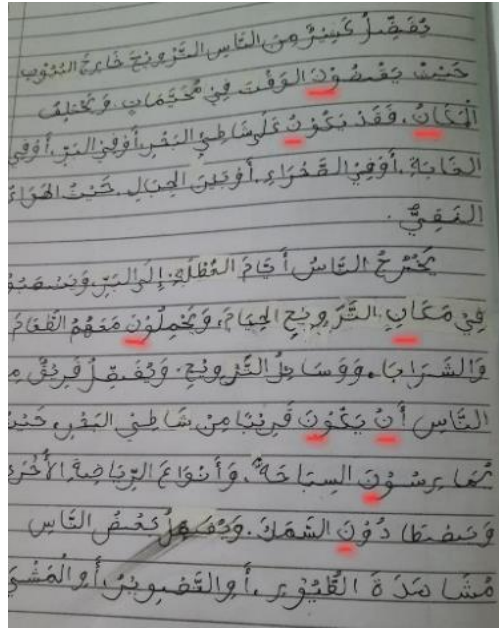 يُفَضِّلُ كَثِيرٌ مِنَ النَّاسِ التَّرْوِيحَ خَارِجَ الْبُيُوتِ
حَيْثُ يَقْضُوْنَ الوَقْتَ فِي مُخَيَّمَاتٍ وَيَخْتَلِفُ
الْمَكَانُ، فَقَدْ يَكُوْنُ عَلَى شَاطِئِ البَحْرِ أَوْ فِي البَرِّ، أَوْ فِي
الغَابَةِ، أَوْ فِي الصَّحْرَاءِ، أَوْ بَيْنَ الجِبَالِ، حَيْثُ الهَوَاءُ
النَّقِيُّ.
يَخْرُجُ النَّاسُ أَيَّامَ العُطْلَةِ إِلَى البَرِّ، وَيَنْصِبُوْ
فِيْ مَكَانِ التَّرْوِيحِ الخِيَامَ، وَيَحْمِلُوْنَ مَعَهُمُ الطَّعَامَ
وَالشَّرَابَ، وَوَسَائِلَ التَّرْوِيْحِ. وَيُفَضِّلُ فَرِيْقٌ مِ
النَّاسِ أَنْ يَكُوْنَ قَرِيْبًا مِنْ شَاطِئِ البَحْرِ، حَيْث
يُمَارِسُوْنَ السِبَاحَةَ، وَأَنْوَاعَ الرِّيَاضَةِ الأُخْرَى
وَيَصْطَادُوْنَ السَّمَكَ. وَيُفَضِّلُ بَعْضُ النَّاسِ
مُشَاهَدَةَ الطُّيُوْرِ، أَوِ التَّصْوِيْرَ، أَوِ الْمَشْيَ